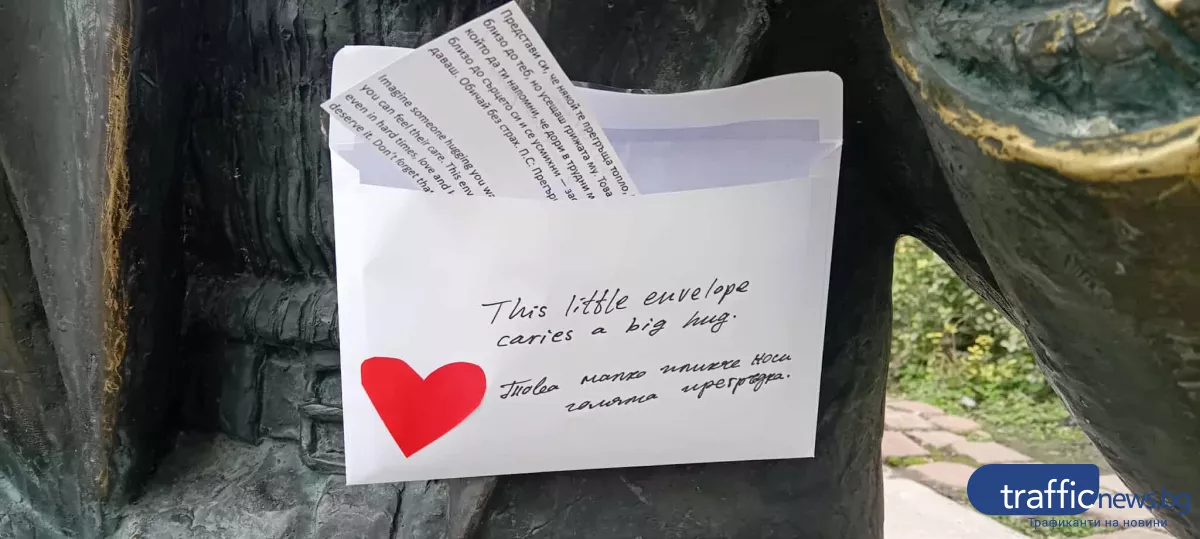 Представи си, че някой те прегръща топло,
близо до теб, но усещаш грижата му. Това
който да ти напомни, че дори в трудни м
близо до сърцето си и се усмихни – зас
даваш. Обичай без страх. П.С. Прегръ
Imagine someone hugging you wa
you can feel their care. This env
even in hard times, love and
deserve it. Don't forget tha
This little envelope
caries a big hug.
Това малко пликче носи
голяма прегръдка.
trafficnews.bg
Трафиканти на новини